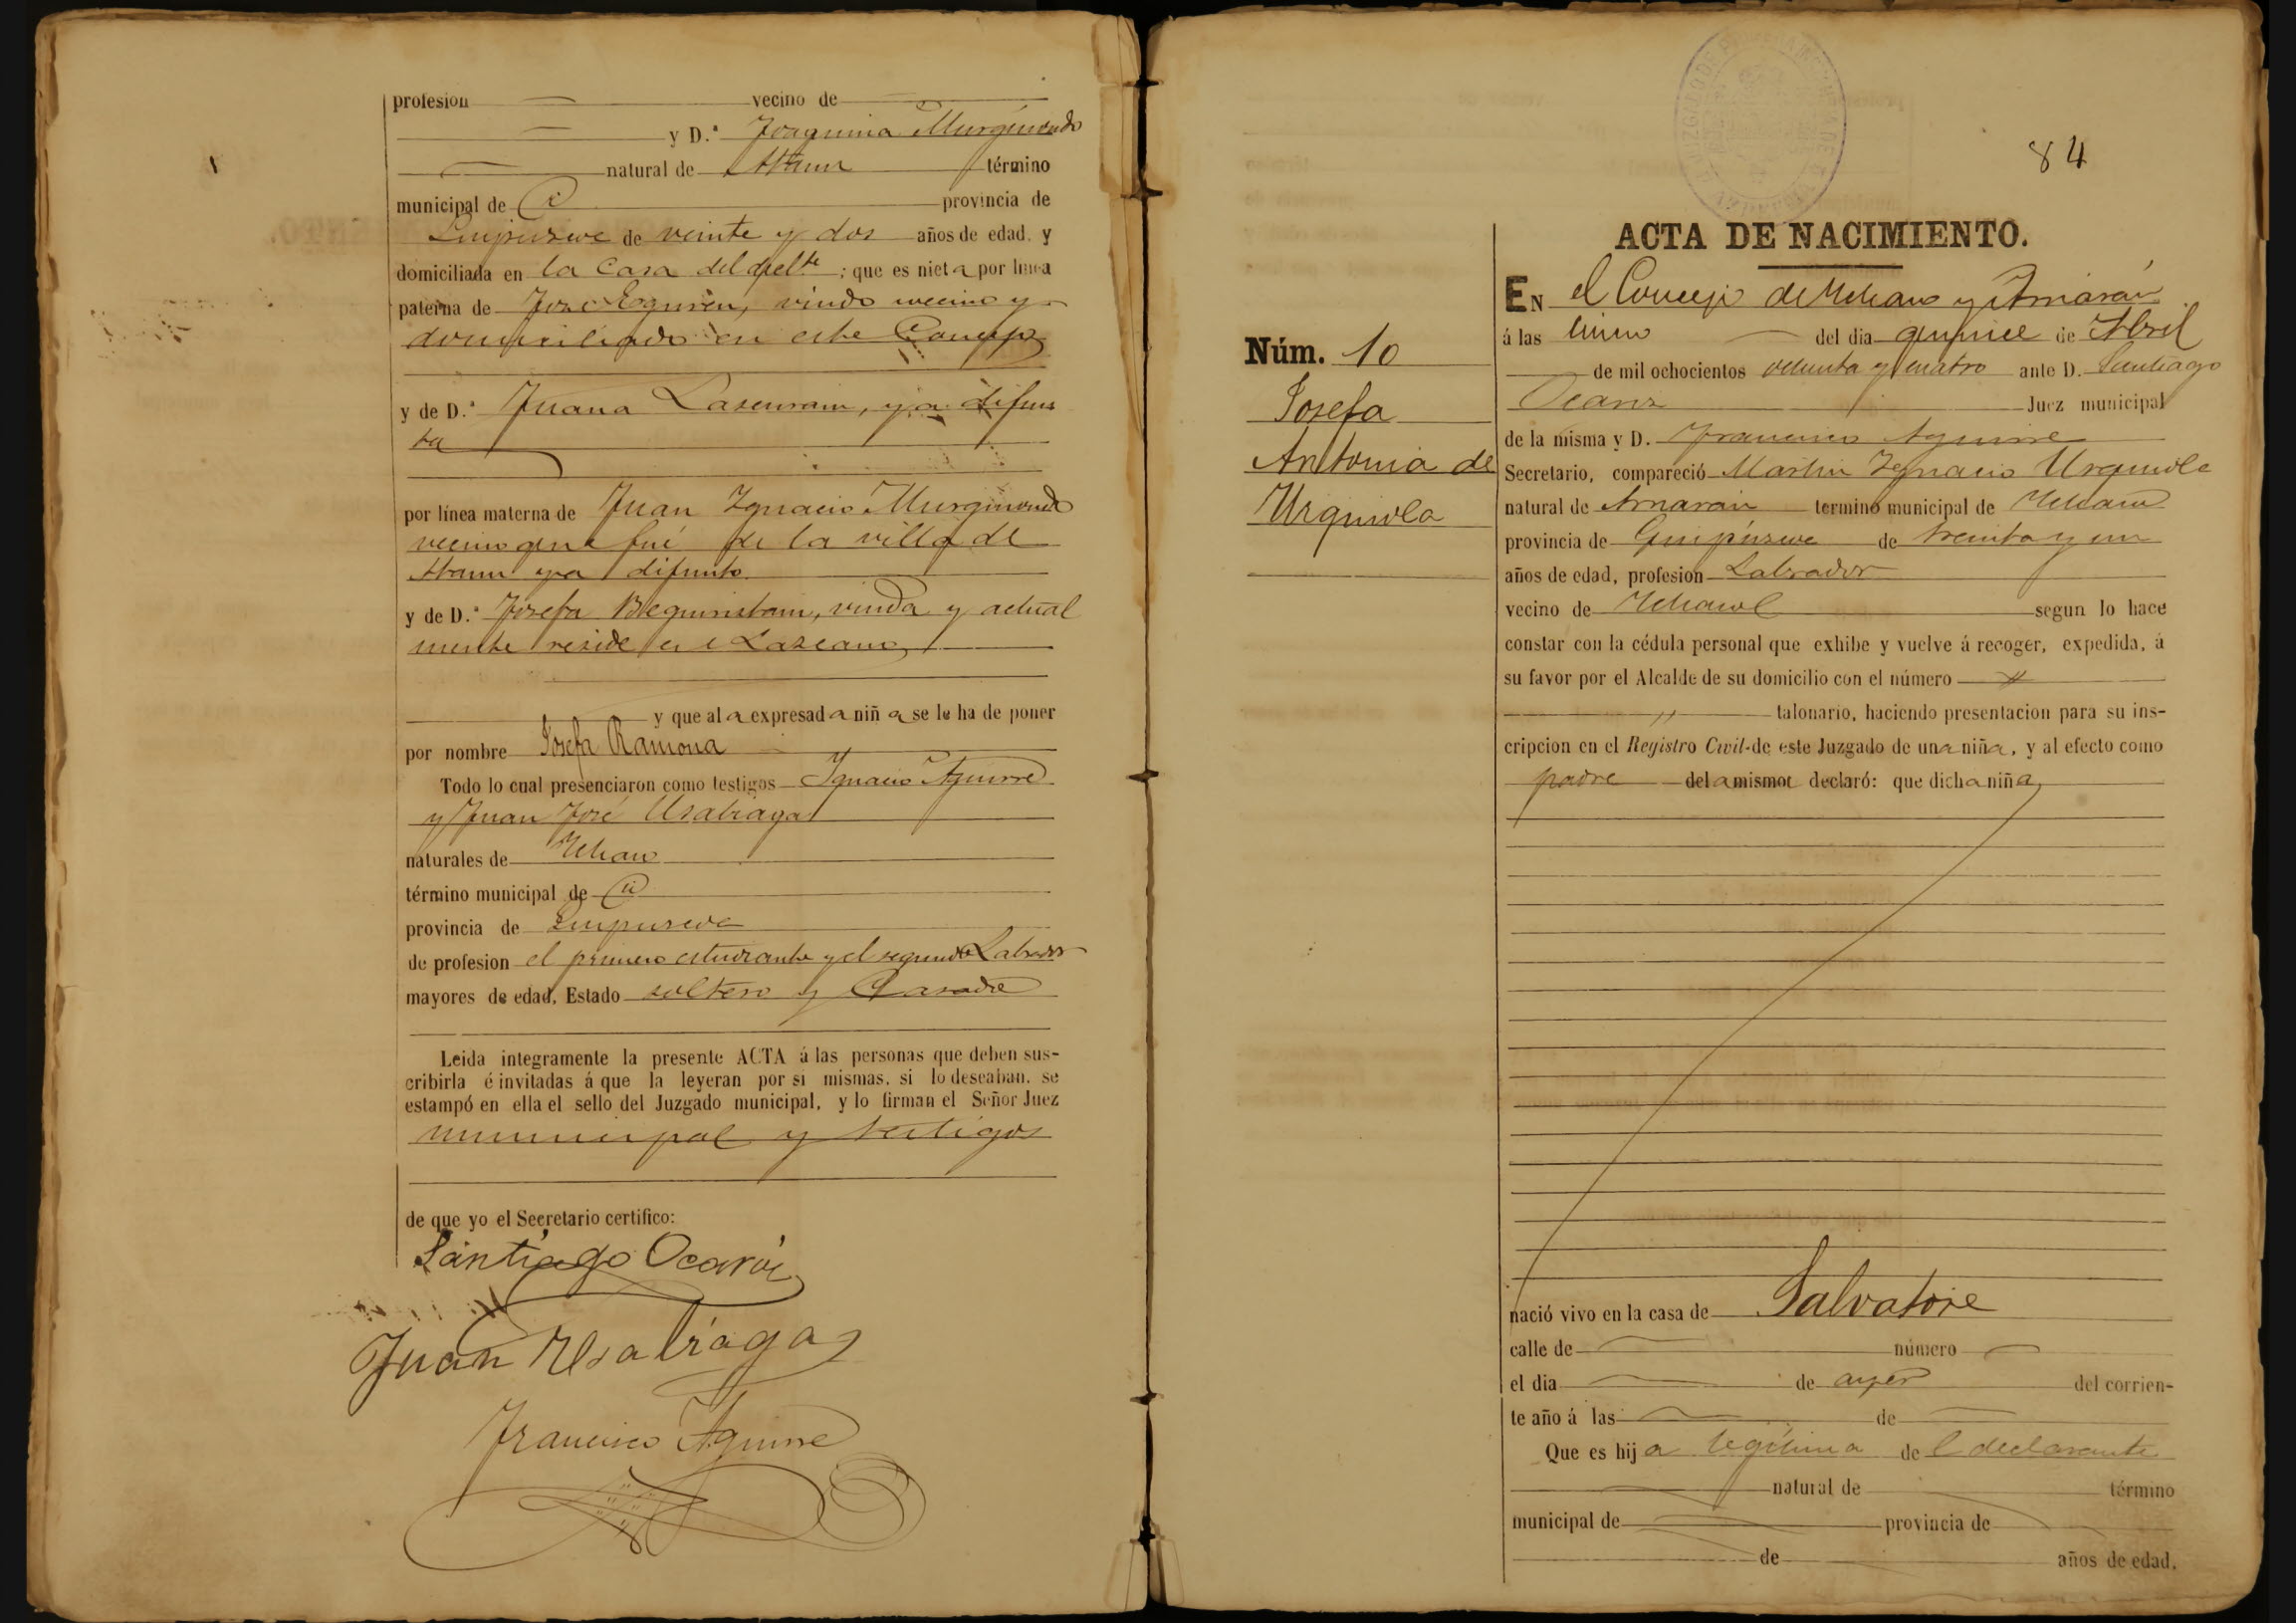 profesion — vecino de —
— y D.ª Joaquina Murguiondo
— natural de Ataun término
municipal de id provincia de
Guipuzcoa de veinte y dos años de edad, y
domiciliada en la Casa del decl.te; que es nieta por línea
paterna de José Eguren, viudo vecino y
domiciliado en este Concejo
y de D.ª Juana Lascurain, ya difun
ta
por línea materna de Juan Ignacio Murguiondo
vecino que fué de la villa de
Ataun ya difunto
y de D.ª Josefa Beguiristain, viuda y actual
mente reside en Lazcano
y que al a expresada niña se le ha de poner
por nombre Josefa Ramona
Todo lo cual presenciaron como testigos Ignacio Aguirre
y Juan José Usabiaga
naturales de Ichaso
término municipal de id
provincia de Guipuzcoa
de profesion el primero estudiante y el segundo Labrador
mayores de edad, Estado soltero y Casado
Leida integramente la presente ACTA á las personas que deben sus-
cribirla é invitadas á que la leyeran por sí mismas, si lo deseaban, se
estampó en ella el sello del Juzgado municipal, y lo firman el Señor Juez
municipal y testigos
de que yo el Secretario certifico:
Santiago Ocariz
Juan Usabiaga
Francisco Aguirre
84
ACTA DE NACIMIENTO.
Núm. 10
Josefa
Antonia de
Urquiola
EN el Concejo de Ichaso y Arriarán
á las cinco del dia quince de Abril
de mil ochocientos ochenta y cuatro ante D. Santiago
Ocariz Juez municipal
de la misma y D. Francisco Aguirre
Secretario, compareció Martin Ignacio Urquiola
natural de Arriaran termino municipal de Ichaso
provincia de Guipúzcoa de treinta y un
años de edad, profesion Labrador
vecino de Ichaso segun lo hace
constar con la cédula personal que exhibe y vuelve á recoger, expedida, á
su favor por el Alcalde de su domicilio con el número "
" talonario, haciendo presentacion para su ins-
cripcion en el Registro Civil de este Juzgado de una niña, y al efecto como
padre de la misma declaró: que dicha niña
nació vivo en la casa de Salvatore
calle de — número —
el dia — de ayer del corrien-
te año á las — de —
Que es hija legítima de l declarante
— natural de — término
municipal de — provincia de —
— de — años de edad.